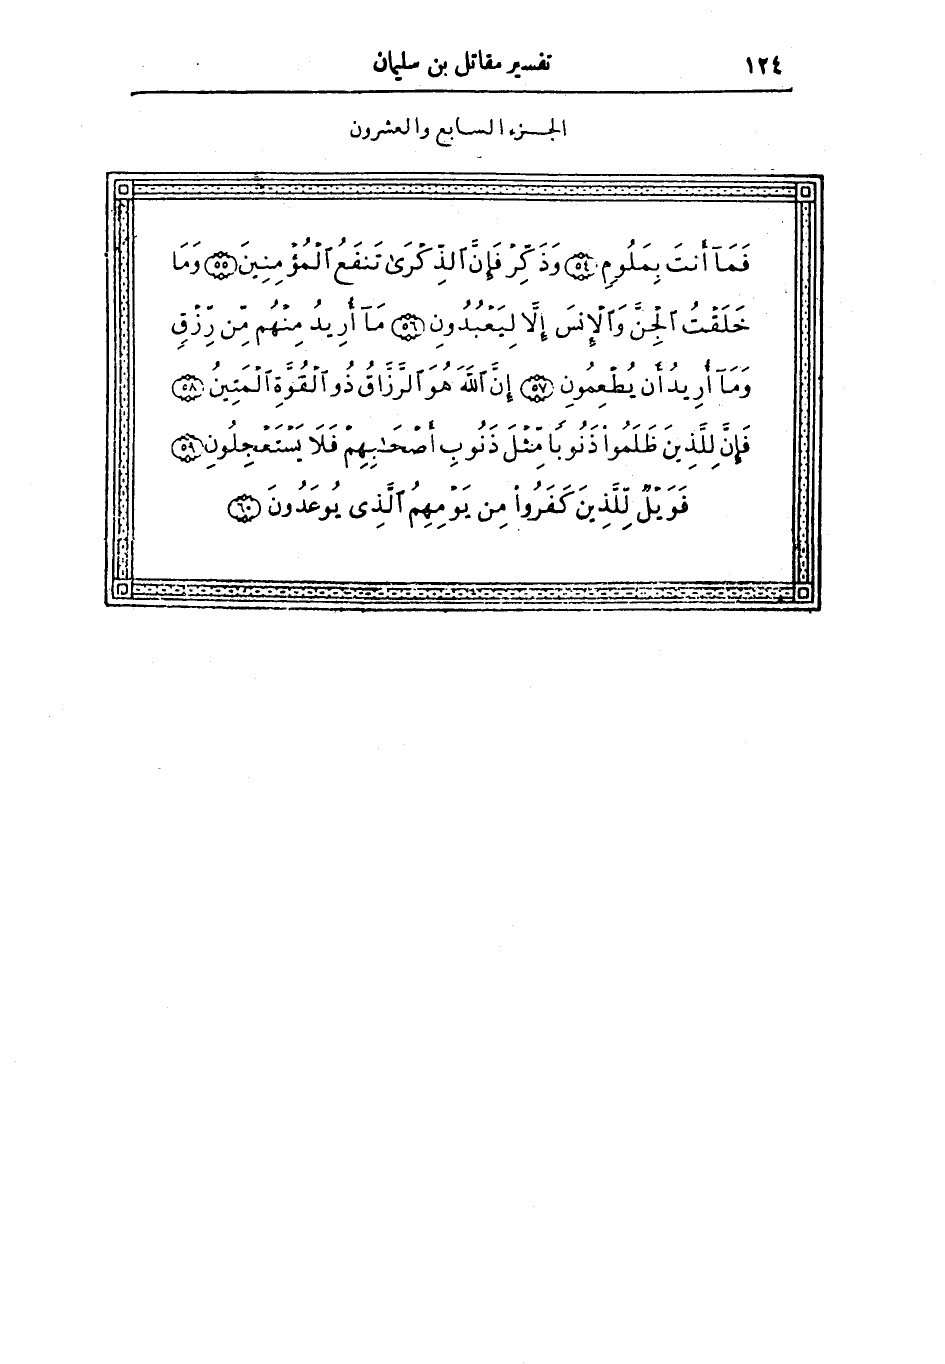 ١٢٤ تفسير مقاتل بن سليمان
الجزء السابع والعشرون
فَمَآ أَنتَ بِمَلُومٍ ٥٤ وَذَكِّرْ فَإِنَّ ٱلذِّكْرَىٰ تَنفَعُ ٱلْمُؤْمِنِينَ ٥٥ وَمَا
خَلَقْتُ ٱلْجِنَّ وَٱلْإِنسَ إِلَّا لِيَعْبُدُونِ ٥٦ مَآ أُرِيدُ مِنْهُم مِّن رِّزْقٍ
وَمَآ أُرِيدُ أَن يُطْعِمُونِ ٥٧ إِنَّ ٱللَّهَ هُوَ ٱلرَّزَّاقُ ذُو ٱلْقُوَّةِ ٱلْمَتِينُ ٥٨
فَإِنَّ لِلَّذِينَ ظَلَمُوا۟ ذَنُوبًا مِّثْلَ ذَنُوبِ أَصْحَـٰبِهِمْ فَلَا يَسْتَعْجِلُونِ ٥٩
فَوَيْلٌ لِّلَّذِينَ كَفَرُوا۟ مِن يَوْمِهِمُ ٱلَّذِى يُوعَدُونَ ٦٠